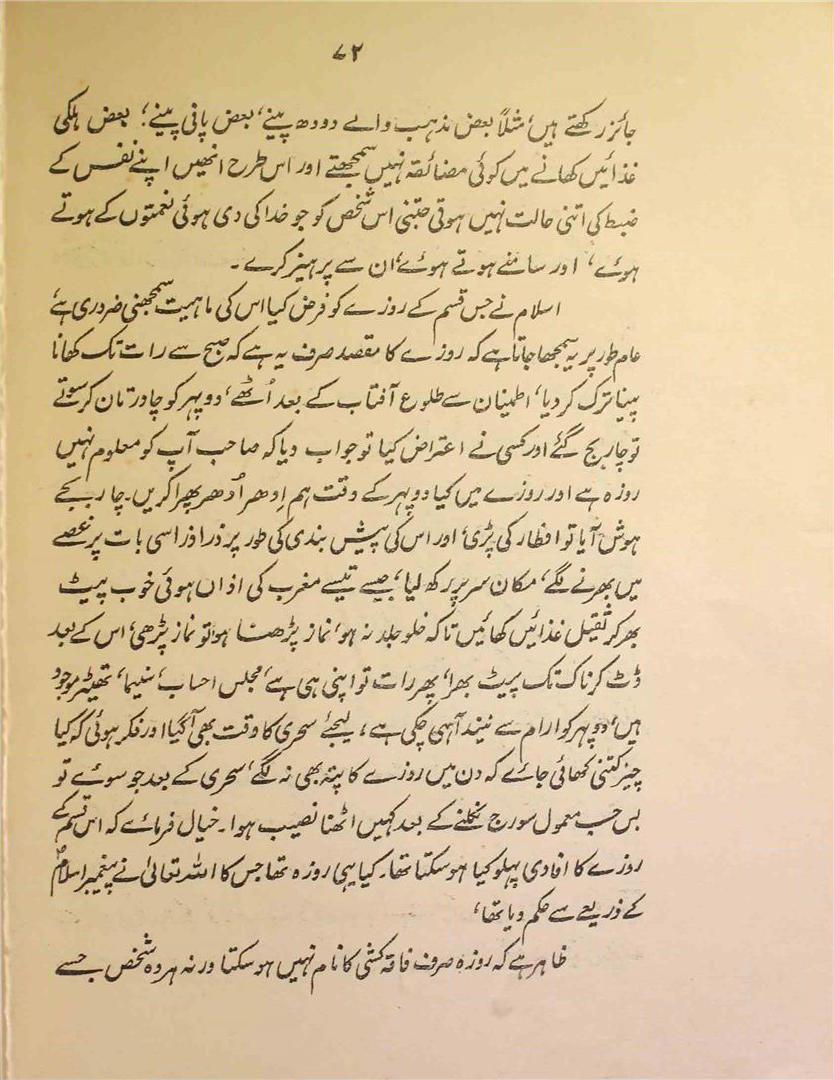 ۷۲
جائز رکھتے ہیں، مثلاً بعض مذہب والے دودھ پینے، بعض پانی پینے؛ بعض ہلکی
غذائیں کھانے میں کوئی مضائقہ نہیں سمجھتے اور اس طرح انھیں اپنے نفس کے
ضبط کی اتنی حالت نہیں ہوتی جتنی اس شخص کو جو خدا کی دی ہوئی نعمتوں کے ہوتے
ہوئے، اور سامنے ہوتے ہوئے، ان سے پرہیز کرے۔
اسلام نے جس قسم کے روزے کو فرض کیا اس کی ماہیت سمجھنی ضروری ہے،
عام طور پر یہ سمجھا جاتا ہے کہ روزے کا مقصد صرف یہ ہے کہ صبح سے رات تک کھانا
پینا ترک کر دیا، اطمینان سے طلوع آفتاب کے بعد اُٹھے، دوپہر کو چادر تان کر سوتے
تو چار بج گئے اور کسی نے اعتراض کیا تو جواب دیا کہ صاحب آپ کو معلوم نہیں
روزہ ہے اور روزے میں کیا دوپہر کے وقت ہم اِدھر اُدھر پھرا کریں۔ چار بجے
ہوش آیا تو افطار کی پڑی، اور اس کی پیش بندی کی طور پر ذرا ذرا سی بات پر غصے
میں بھرنے لگے، مکان سر پر رکھ لیا، جیسے تیسے مغرب کی اذاں ہوئی خوب پیٹ
بھر کر ثقیل غذائیں کھائیں تاکہ خلو جلد نہ ہو، نماز پڑھنا ہو تو نماز پڑھی، اس کے بعد
ڈٹ کر ناک تک پیٹ بھرا، پھر رات تو اپنی ہی ہے، مجلس احباب، سنیما، تھیٹر موجود
ہیں، دوپہر کو ارام سے نیند آہی چکی ہے، لیجئے سحری کا وقت بھی آگیا اور فکر ہوئی کہ کیا
چیز کتنی کھائی جائے کہ دن میں روزے کا پتہ بھی نہ لگے، سحری کے بعد جو سوئے تو
بس حسب معمول سورج نکلنے کے بعد کہیں اٹھنا نصیب ہوا۔ خیال فرمائے کہ اس قسم کے
روزے کا افادی پہلو کیا ہو سکتا تھا۔ کیا یہی روزہ تھا جس کا اللہ تعالیٰ نے پیغمبر اسلامؐ
کے ذریعے سے حکم دیا تھا،
ظاہر ہے کہ روزہ صرف فاقہ کشی کا نام نہیں ہو سکتا ورنہ ہر وہ شخص جسے